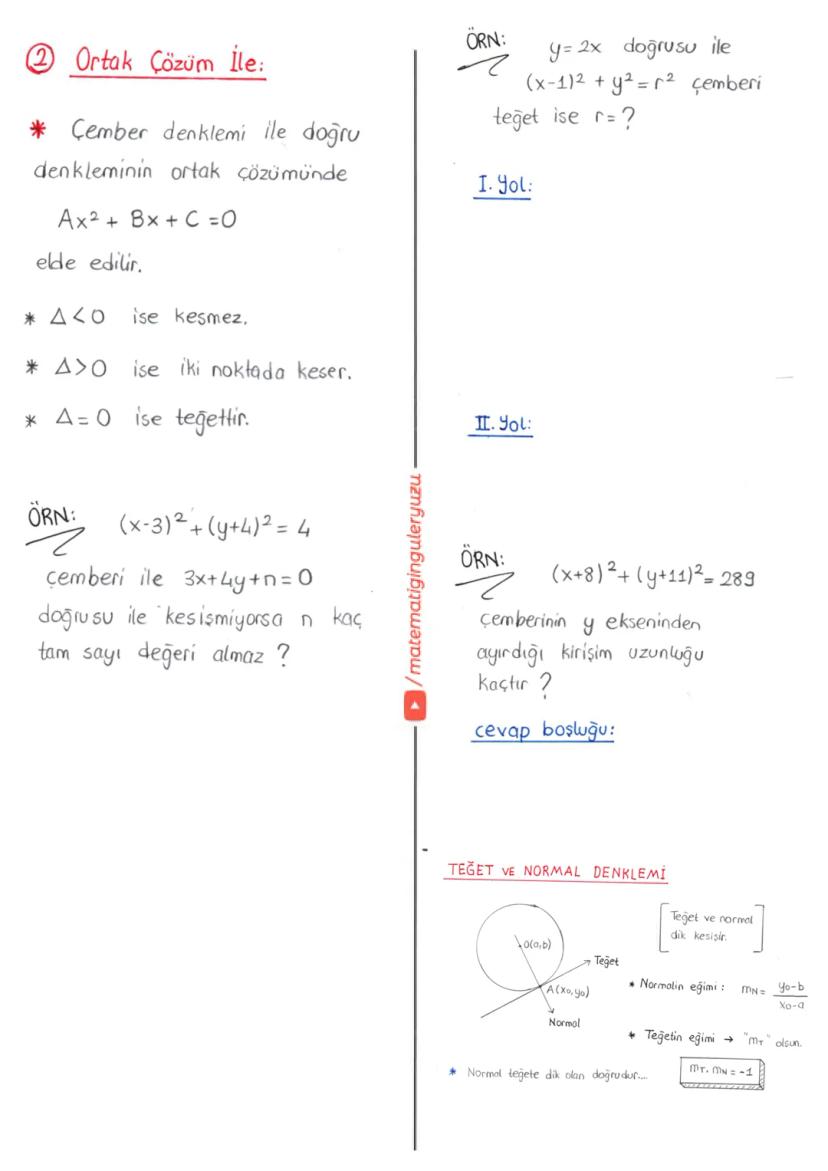 ② Ortak Çözüm İle:
* Çember denklemi ile doğru
denkleminin ortak çözümünde
Ax² + Bx + C = 0
elde edilir.
* Δ<0 ise kesmez.
* Δ>0 ise iki noktada keser.
* Δ=0 ise teğettir.
ÖRN: (x-3)² + (y+4)² = 4
çemberi ile 3x+4y+n=0
doğrusu ile kesişmiyorsa n kaç
tam sayı değeri almaz ?
/matematiginguleryuzu
ÖRN: y=2x doğrusu ile
(x-1)² + y² = r² çemberi
teğet ise r=?
I. Yol:
II. Yol:
ÖRN: (x+8)² + (y+11)² = 289
çemberinin y ekseninden
ayırdığı kirişim uzunluğu
kaçtır ?
cevap boşluğu:
TEĞET VE NORMAL DENKLEMİ
O(a,b)
Teğet
A(x₀,y₀)
Normal
Teğet ve normal
dik kesişir.
* Normalin eğimi : mN = y₀-b / x₀-a
* Teğetin eğimi → "mT" olsun.
* Normal teğete dik olan doğrudur....
mT. mN = -1